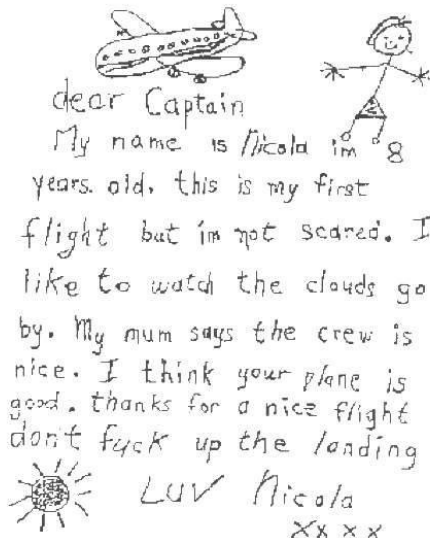 dear Captain
My name is Nicola im 8
years old, this is my first
flight but im not scared. I
like to watch the clouds go
by. My mum says the crew is
nice. I think your plane is
good. thanks for a nice flight
don't fuck up the landing
LUV Nicola
XXXX